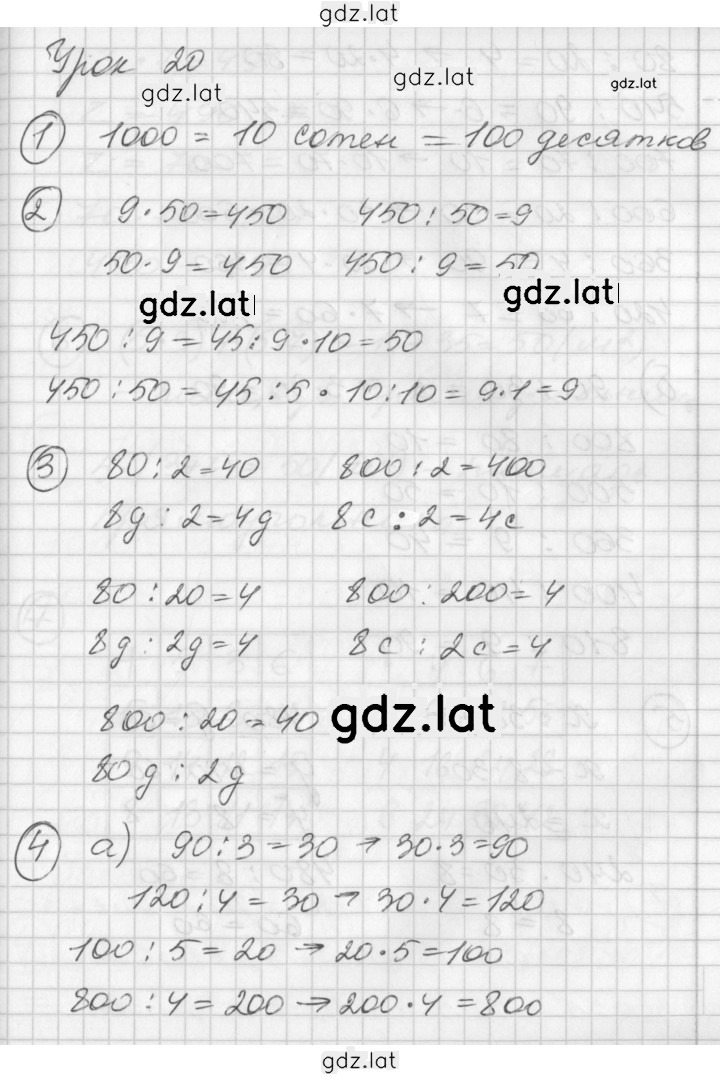 gdz.lat
Урок 20
gdz.lat gdz.lat gdz.lat
1 1000 = 10 сотен = 100 десятков
2 9·50=450 450:50=9
50·9=450 450:9=50
gdz.lat gdz.lat
450:9=45:9·10=50
450:50=45:5·10:10=9·1=9
3 80:2=40 800:2=400
8д:2=4д 8с:2=4с
80:20=4 800:200=4
8д:2д=4 8с:2с=4
800:20=40 gdz.lat
80д:2д
4 а) 90:3=30 → 30·3=90
120:4=30 → 30·4=120
100:5=20 → 20·5=100
800:4=200 → 200·4=800
gdz.lat